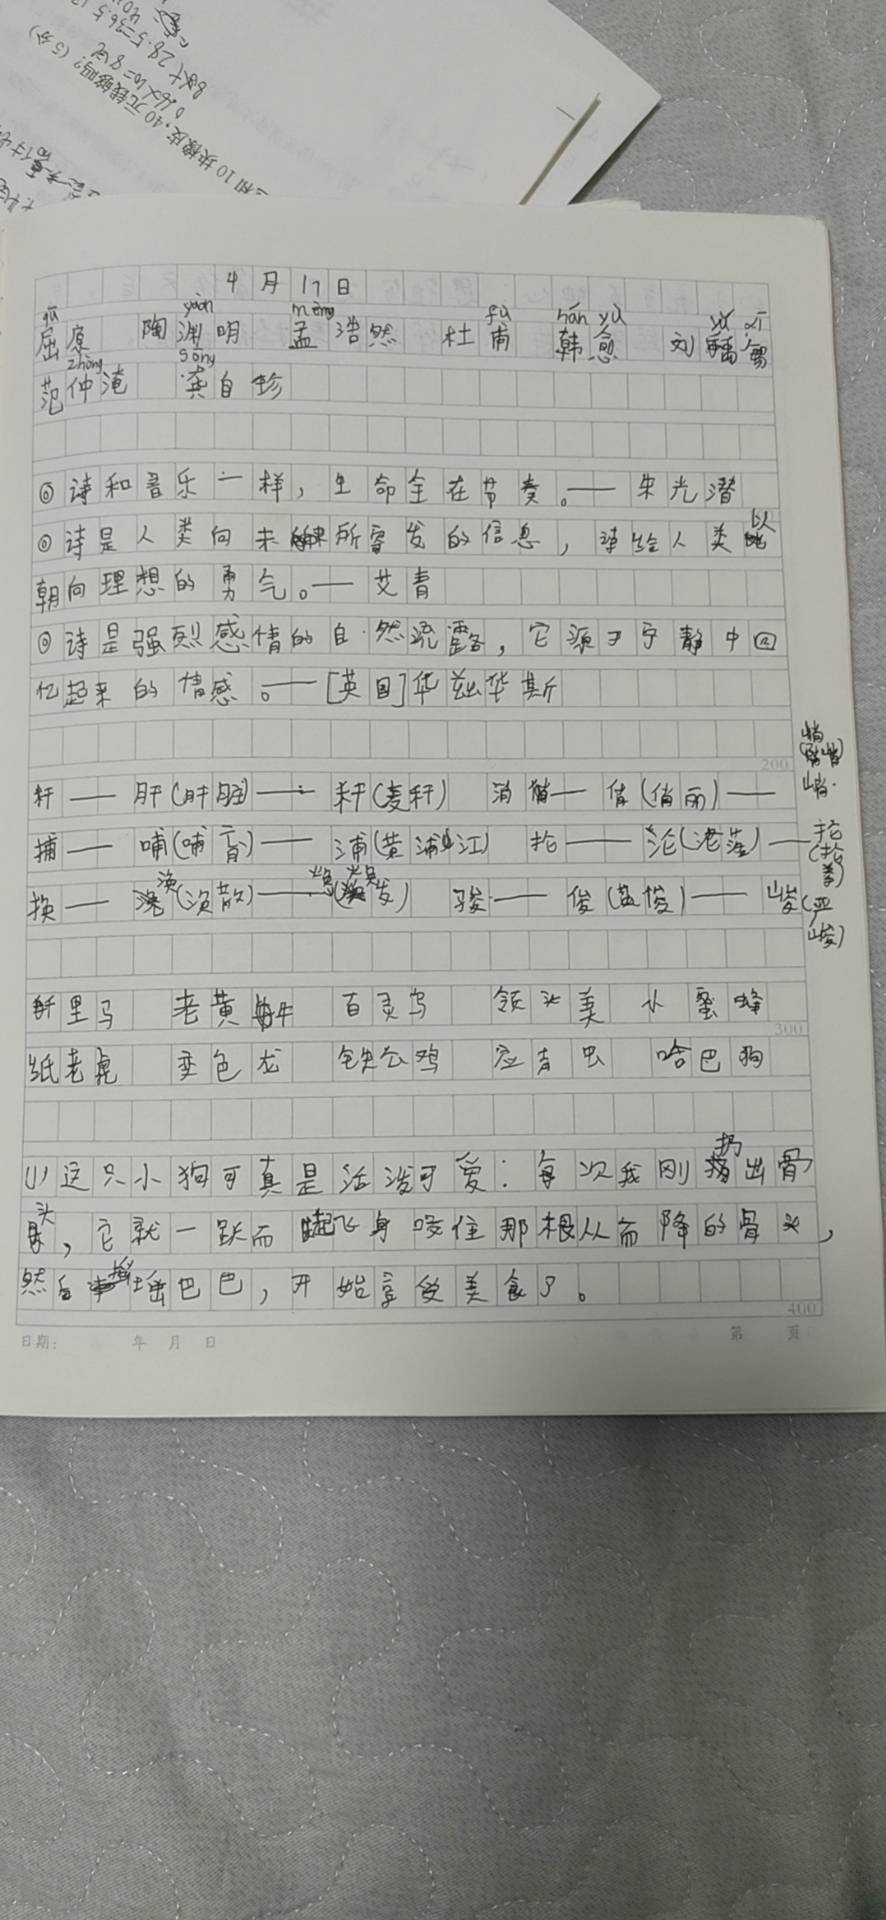 和10块橡皮,40元钱够吗?(5分)
4月17日
qū yuān mèng fǔ hán yù yǔ xī
屈原 陶渊明 孟浩然 杜甫 韩愈 刘禹锡
zhòng gōng
范仲淹 龚自珍
◎诗和音乐一样,生命全在节奏。——朱光潜
◎诗是人类向未来所寄发的信息,诗给人类以
朝向理想的勇气。——艾青
◎诗是强烈感情的自然流露,它源于宁静中回
忆起来的情感。——[英国]华兹华斯
200
杆——肝(肝脏)——秆(麦秆) 消——俏(俏丽)——峭
捕——哺(哺育)——浦(黄浦江) 抢——沦(沦落)——抡(抡拳)
换——涣(涣散)——焕(焕发) 骏——俊(英俊)——峻(严峻)
千里马 老黄牛 百灵鸟 领头羊 小蜜蜂
300
纸老虎 变色龙 铁公鸡 应声虫 哈巴狗
(1)这只小狗可真是活泼可爱:每次我刚扔出骨
头,它就一跃而起飞身咬住那根从而降的骨头,
然后摇摇巴巴,开始享受美食了。
400
日期: 年 月 日 第 页